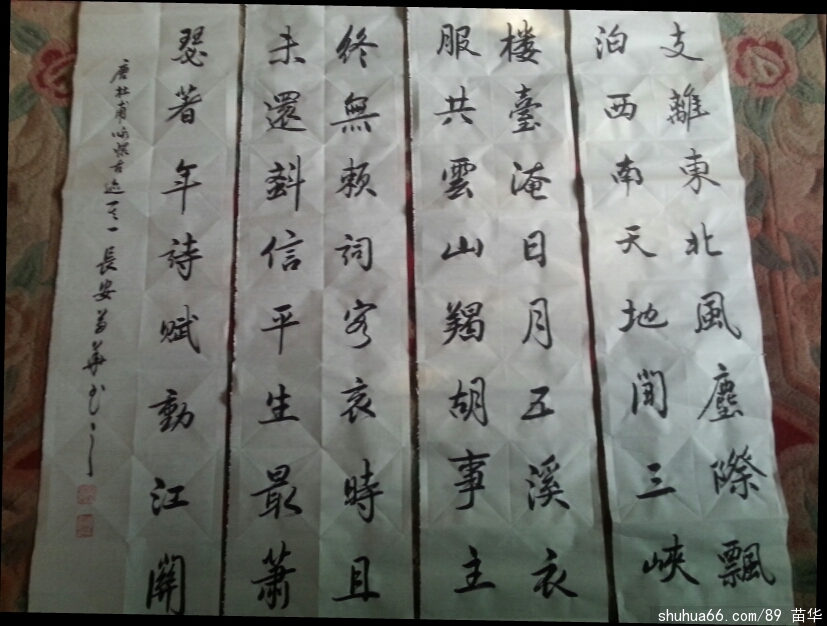 支離東北風塵際飄
泊西南天地間三峽
楼臺淹日月五溪衣
服共雲山羯胡事主
終無賴詞客哀時且
未還信平生最蕭
瑟著年詩賦動江關
唐杜甫咏懷古迹之一長安苗華书
shuhua66.com/89 苗华